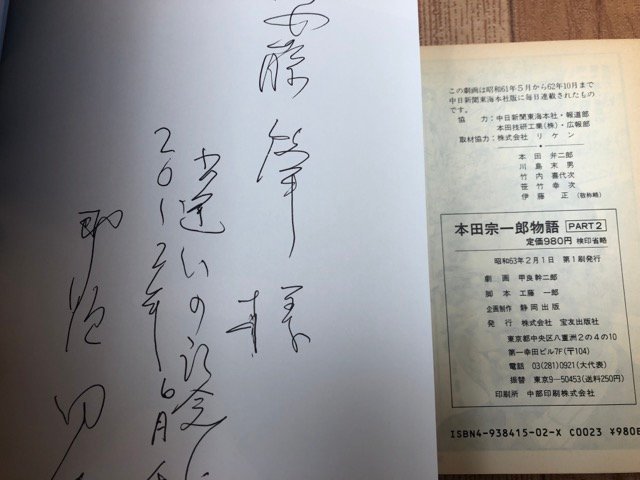 安藤 様
出逢いの記念
2012年6月
この劇画は昭和61年5月から62年10月まで
中日新聞東海本社版に毎日連載されたもの
です。
協 力：中日新聞東海本社・報道部
本田技研工業(株)・広報部
取材協力：株式会社 リケン
本田弁二郎
川島末男
竹内喜代次
笹竹幸次
伊藤 正(敬称略)
本田宗一郎物語 PART2
定価980円 検印省略
昭和63年2月1日 第1刷発行
劇 画 甲良幹二郎
脚 本 工藤一郎
企画制作 静岡出版
発 行 株式会社 宝友出版社
東京都中央区八重洲2の4の10
第一幸田ビル7F(〒104)
電話 03(281)0921(大代表)
振替 東京9-50453(送料250円)
印刷所 中部印刷株式会社
ISBN4-938415-02-X C0023 ¥980E